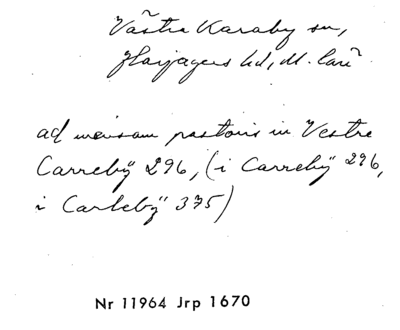 Västra Karaby sn,
Harjagers hd, M. län
ad mensam pastoris in Vestre
Carrebÿ 296, (i Carrebÿ 296,
i Carlebÿ 375)
Nr 11964 Jrp 1670